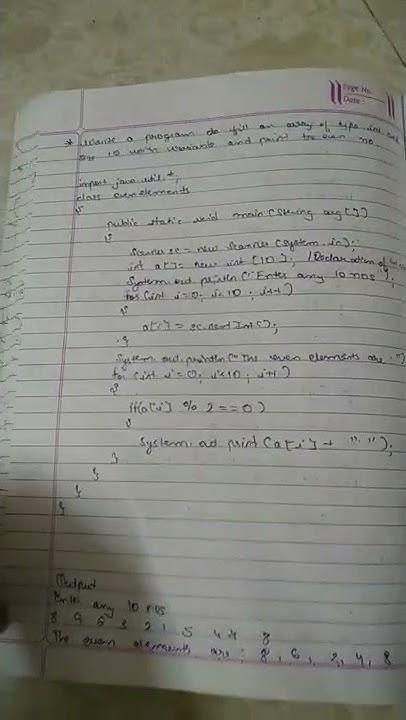 Page No.
Date:
* Write a program to fill an array of type int and
size 10 with variable and print the even no
import java.util.*;
class evenelements
{
public static void main (String arg[])
{
Scanner sc = new Scanner (System.in);
int a[] = new int [10]; /Declaration of
System.out.println ("Enter any 10 nos");
for (int i=0; i<10; i++)
{
a[i] = sc.nextInt();
}
System.out.println ("The even elements are :")
for (int i=0; i<10; i++)
{
if(a[i] % 2 == 0)
{
System.out.print (a[i] + " ");
}
}
}
}
Output
Enter any 10 nos
8 9 6 3 2 1 5 4 4 8
The even elements are : 8, 6, 2, 4, 8